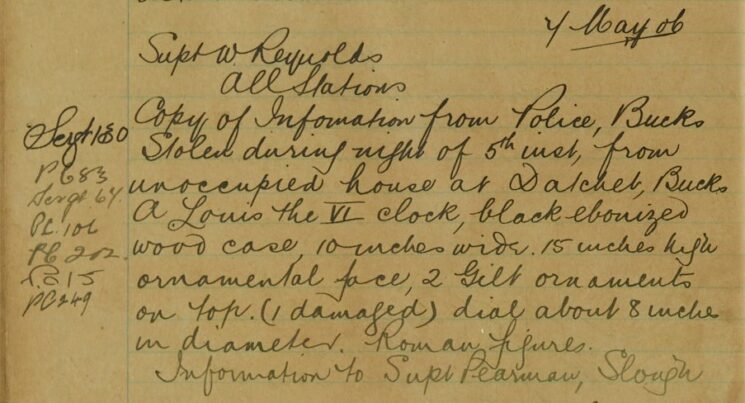 7 May 06
Supt W. Reynolds
All Stations
Copy of Infomation from Police, Bucks
Stolen during night of 5th inst, from
unoccupied house at Datchet, Bucks
A Louis the VI clock, black ebonized
wood case, 10 inches wide. 15 inches high
ornamental face, 2 Gilt ornaments
on top. (1 damaged) dial about 8 inches
in diameter. Roman figures.
Information to Supt Pearman, Slough
Sergt 130
PC 83
Sergt 64
PC 106
PC 202
215
PC 249